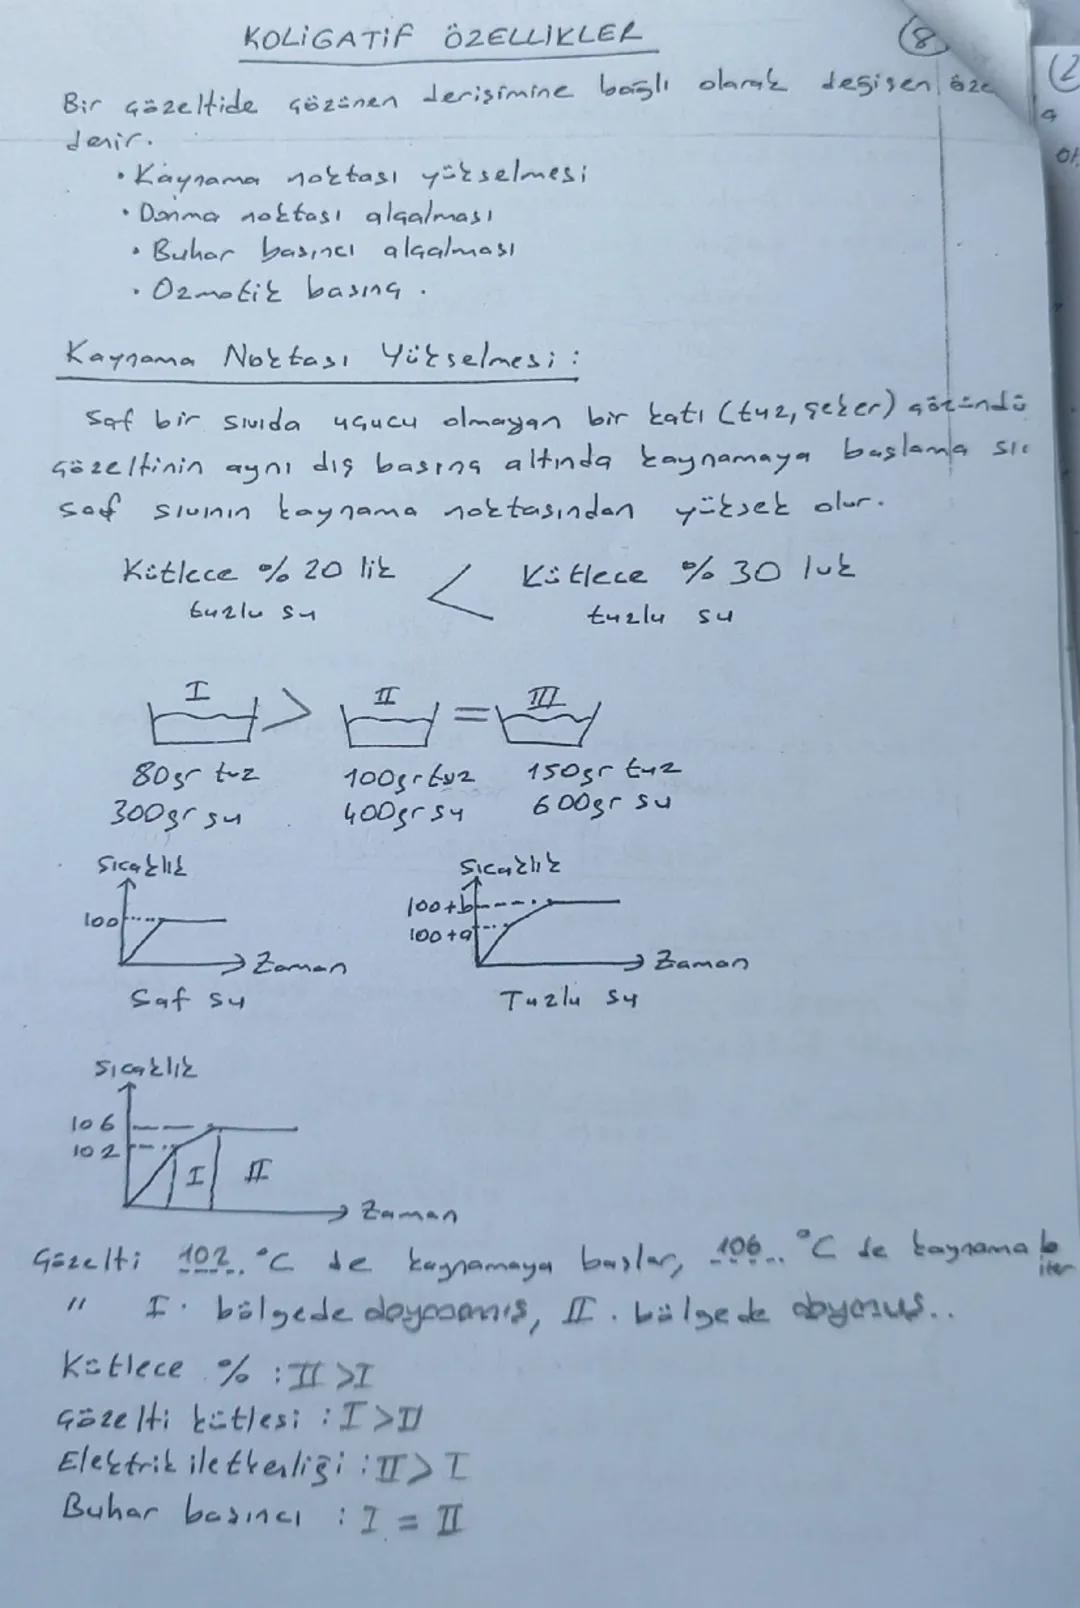 KOLİGATİF ÖZELLİKLER
8
Bir çözeltide çözünen derişimine bağlı olarak değişen öze
denir.
• Kaynama noktası yükselmesi
• Donma noktası alçalması
• Buhar basıncı alçalması
• Ozmotik basınç .
Kaynama Noktası Yükselmesi :
Saf bir sıvıda uçucu olmayan bir katı (tuz, şeker) çözündü
çözeltinin aynı dış basınç altında kaynamaya başlama sıc
saf sıvının kaynama noktasından yüksek olur.
Kütlece % 20 lik < Kütlece % 30 luk
tuzlu su tuzlu su
I > II = III
80gr tuz 100gr tuz 150gr tuz
300gr su 400gr su 600gr su
Sıcaklık Sıcaklık
100 100+b
100+a
Zaman Zaman
Saf su Tuzlu su
Sıcaklık
106
102
I II
Zaman
Çözelti 102 °C de kaynamaya başlar, 106 °C de kaynama b
iter
" I. bölgede doymamış, II. bölgede doymuş..
Kütlece % : II > I
Çözelti kütlesi : I > II
Elektrik iletkenliği : II > I
Buhar basıncı : I = II